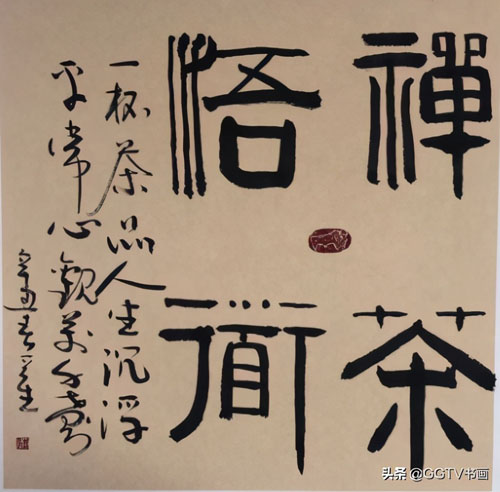 禪茶
悟衜
一杯茶品人生沉浮
平常心觀萬千世界
头条 @GGTV书画